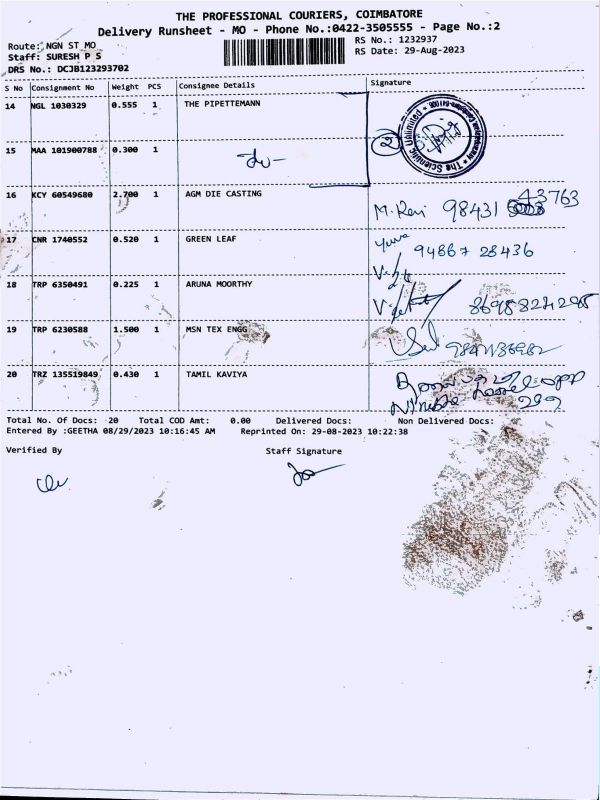 THE PROFESSIONAL COURIERS, COIMBATORE
Delivery Runsheet - MO - Phone No.:0422-3505555 - Page No.:2
Route: NGN ST MO
RS No.: 1232937
Staff: SURESH P S
RS Date: 29-Aug-2023
DRS No.: DCJB123293702
S No Consignment No Weight PCS Consignee Details Signature
14 NGL 1030329 0.555 1 THE PIPETTEMANN
The Scientific
Unlimited
2
15 MAA 101900788 0.300 1
16 KCY 60549680 2.700 1 AGM DIE CASTING
43763
M. Ravi 98431
17 CNR 1740552 0.520 1 GREEN LEAF
yuva 94867 28436
18 TRP 6350491 0.225 1 ARUNA MOORTHY
19 TRP 6230588 1.500 1 MSN TEX ENGG
20 TRZ 135519849 0.430 1 TAMIL KAVIYA
Total No. Of Docs: 20 Total COD Amt: 0.00 Delivered Docs: Non Delivered Docs:
Entered By :GEETHA 08/29/2023 10:16:45 AM Reprinted On: 29-08-2023 10:22:38
Verified By Staff Signature